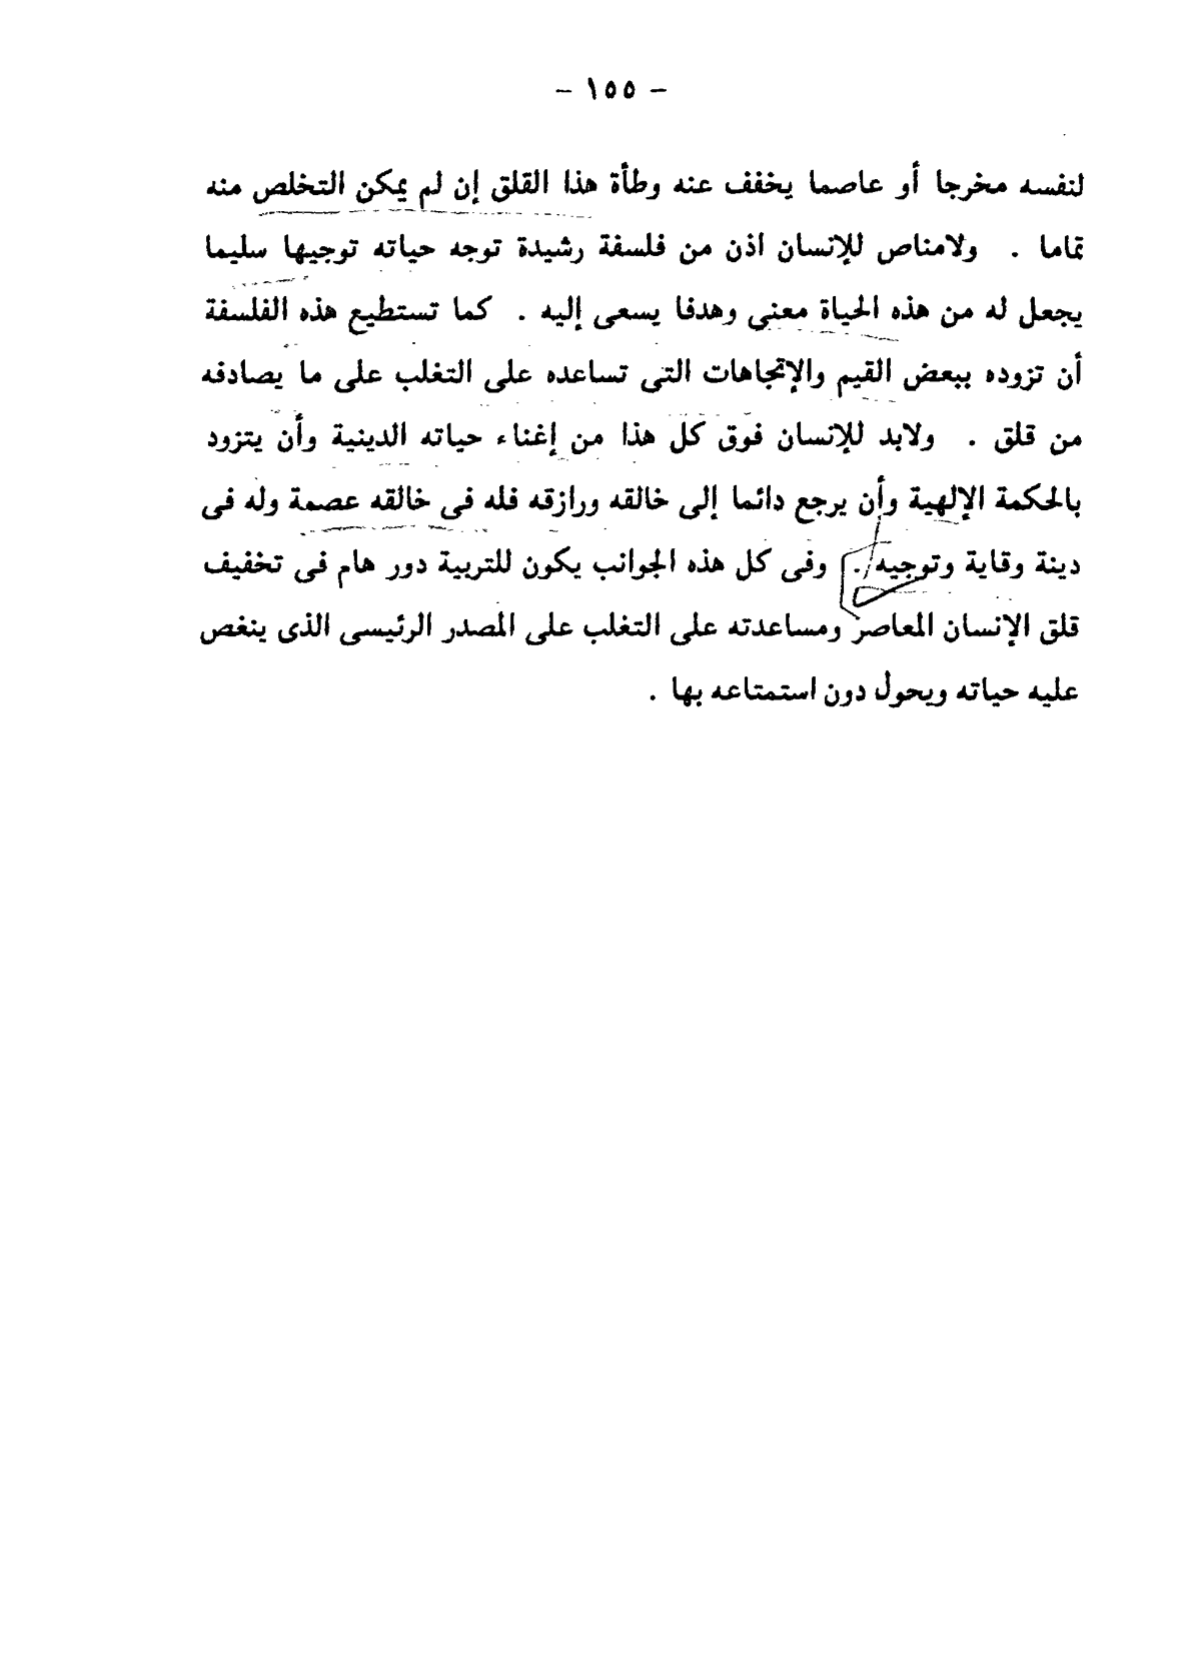 - ١٥٥ -
لنفسه مخرجا أو عاصما يخفف عنه وطأة هذا القلق إن لم يمكن التخلص منه
تماما . ولامناص للإنسان اذن من فلسفة رشيدة توجه حياته توجيها سليما
يجعل له من هذه الحياة معنى وهدفا يسعى إليه . كما تستطيع هذه الفلسفة
أن تزوده ببعض القيم والإتجاهات التى تساعده على التغلب على ما يصادفه
من قلق . ولابد للإنسان فوق كل هذا من إغناء حياته الدينية وأن يتزود
بالحكمة الإلهية وأن يرجع دائما إلى خالقه ورازقه فله فى خالقه عصمة وله فى
دينة وقاية وتوجيه . وفى كل هذه الجوانب يكون للتربية دور هام فى تخفيف
قلق الإنسان المعاصر ومساعدته على التغلب على المصدر الرئيسى الذى ينغص
عليه حياته ويحول دون استمتاعه بها .